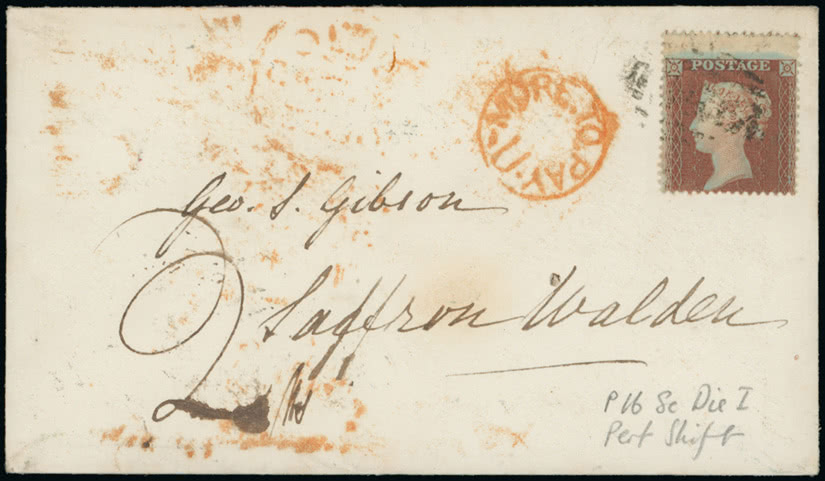 POSTAGE
MORE·TO·PAY·11·
Geo. S. Gibson
2
Saffron Walden
P16 Sc Die I
Perf Shift